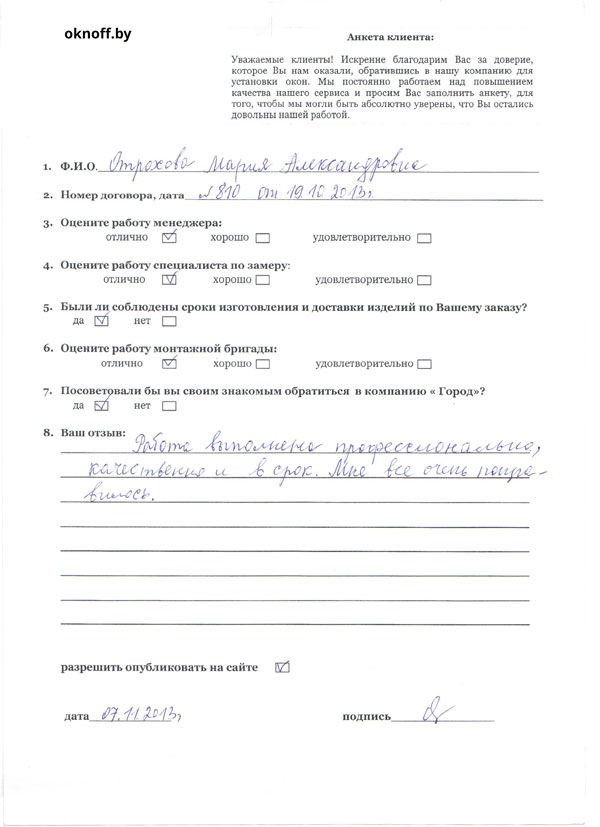 oknoff.by
Анкета клиента:
Уважаемые клиенты! Искренне благодарим Вас за доверие,
которое Вы нам оказали, обратившись в нашу компанию для
установки окон. Мы постоянно работаем над повышением
качества нашего сервиса и просим Вас заполнить анкету, для
того, чтобы мы могли быть абсолютно уверены, что Вы остались
довольны нашей работой.
1. Ф.И.О. Отрохова Мария Александровна
2. Номер договора, дата №810 от 19.10.2013г.
3. Оцените работу менеджера:
отлично хорошо удовлетворительно
4. Оцените работу специалиста по замеру:
отлично хорошо удовлетворительно
5. Были ли соблюдены сроки изготовления и доставки изделий по Вашему заказу?
да нет
6. Оцените работу монтажной бригады:
отлично хорошо удовлетворительно
7. Посоветовали бы вы своим знакомым обратиться в компанию « Город»?
да нет
8. Ваш отзыв: Работа выполнена профессионально,
качественно и в срок. Мне все очень понра-
вилось.
разрешить опубликовать на сайте
дата 07.11.2013г подпись